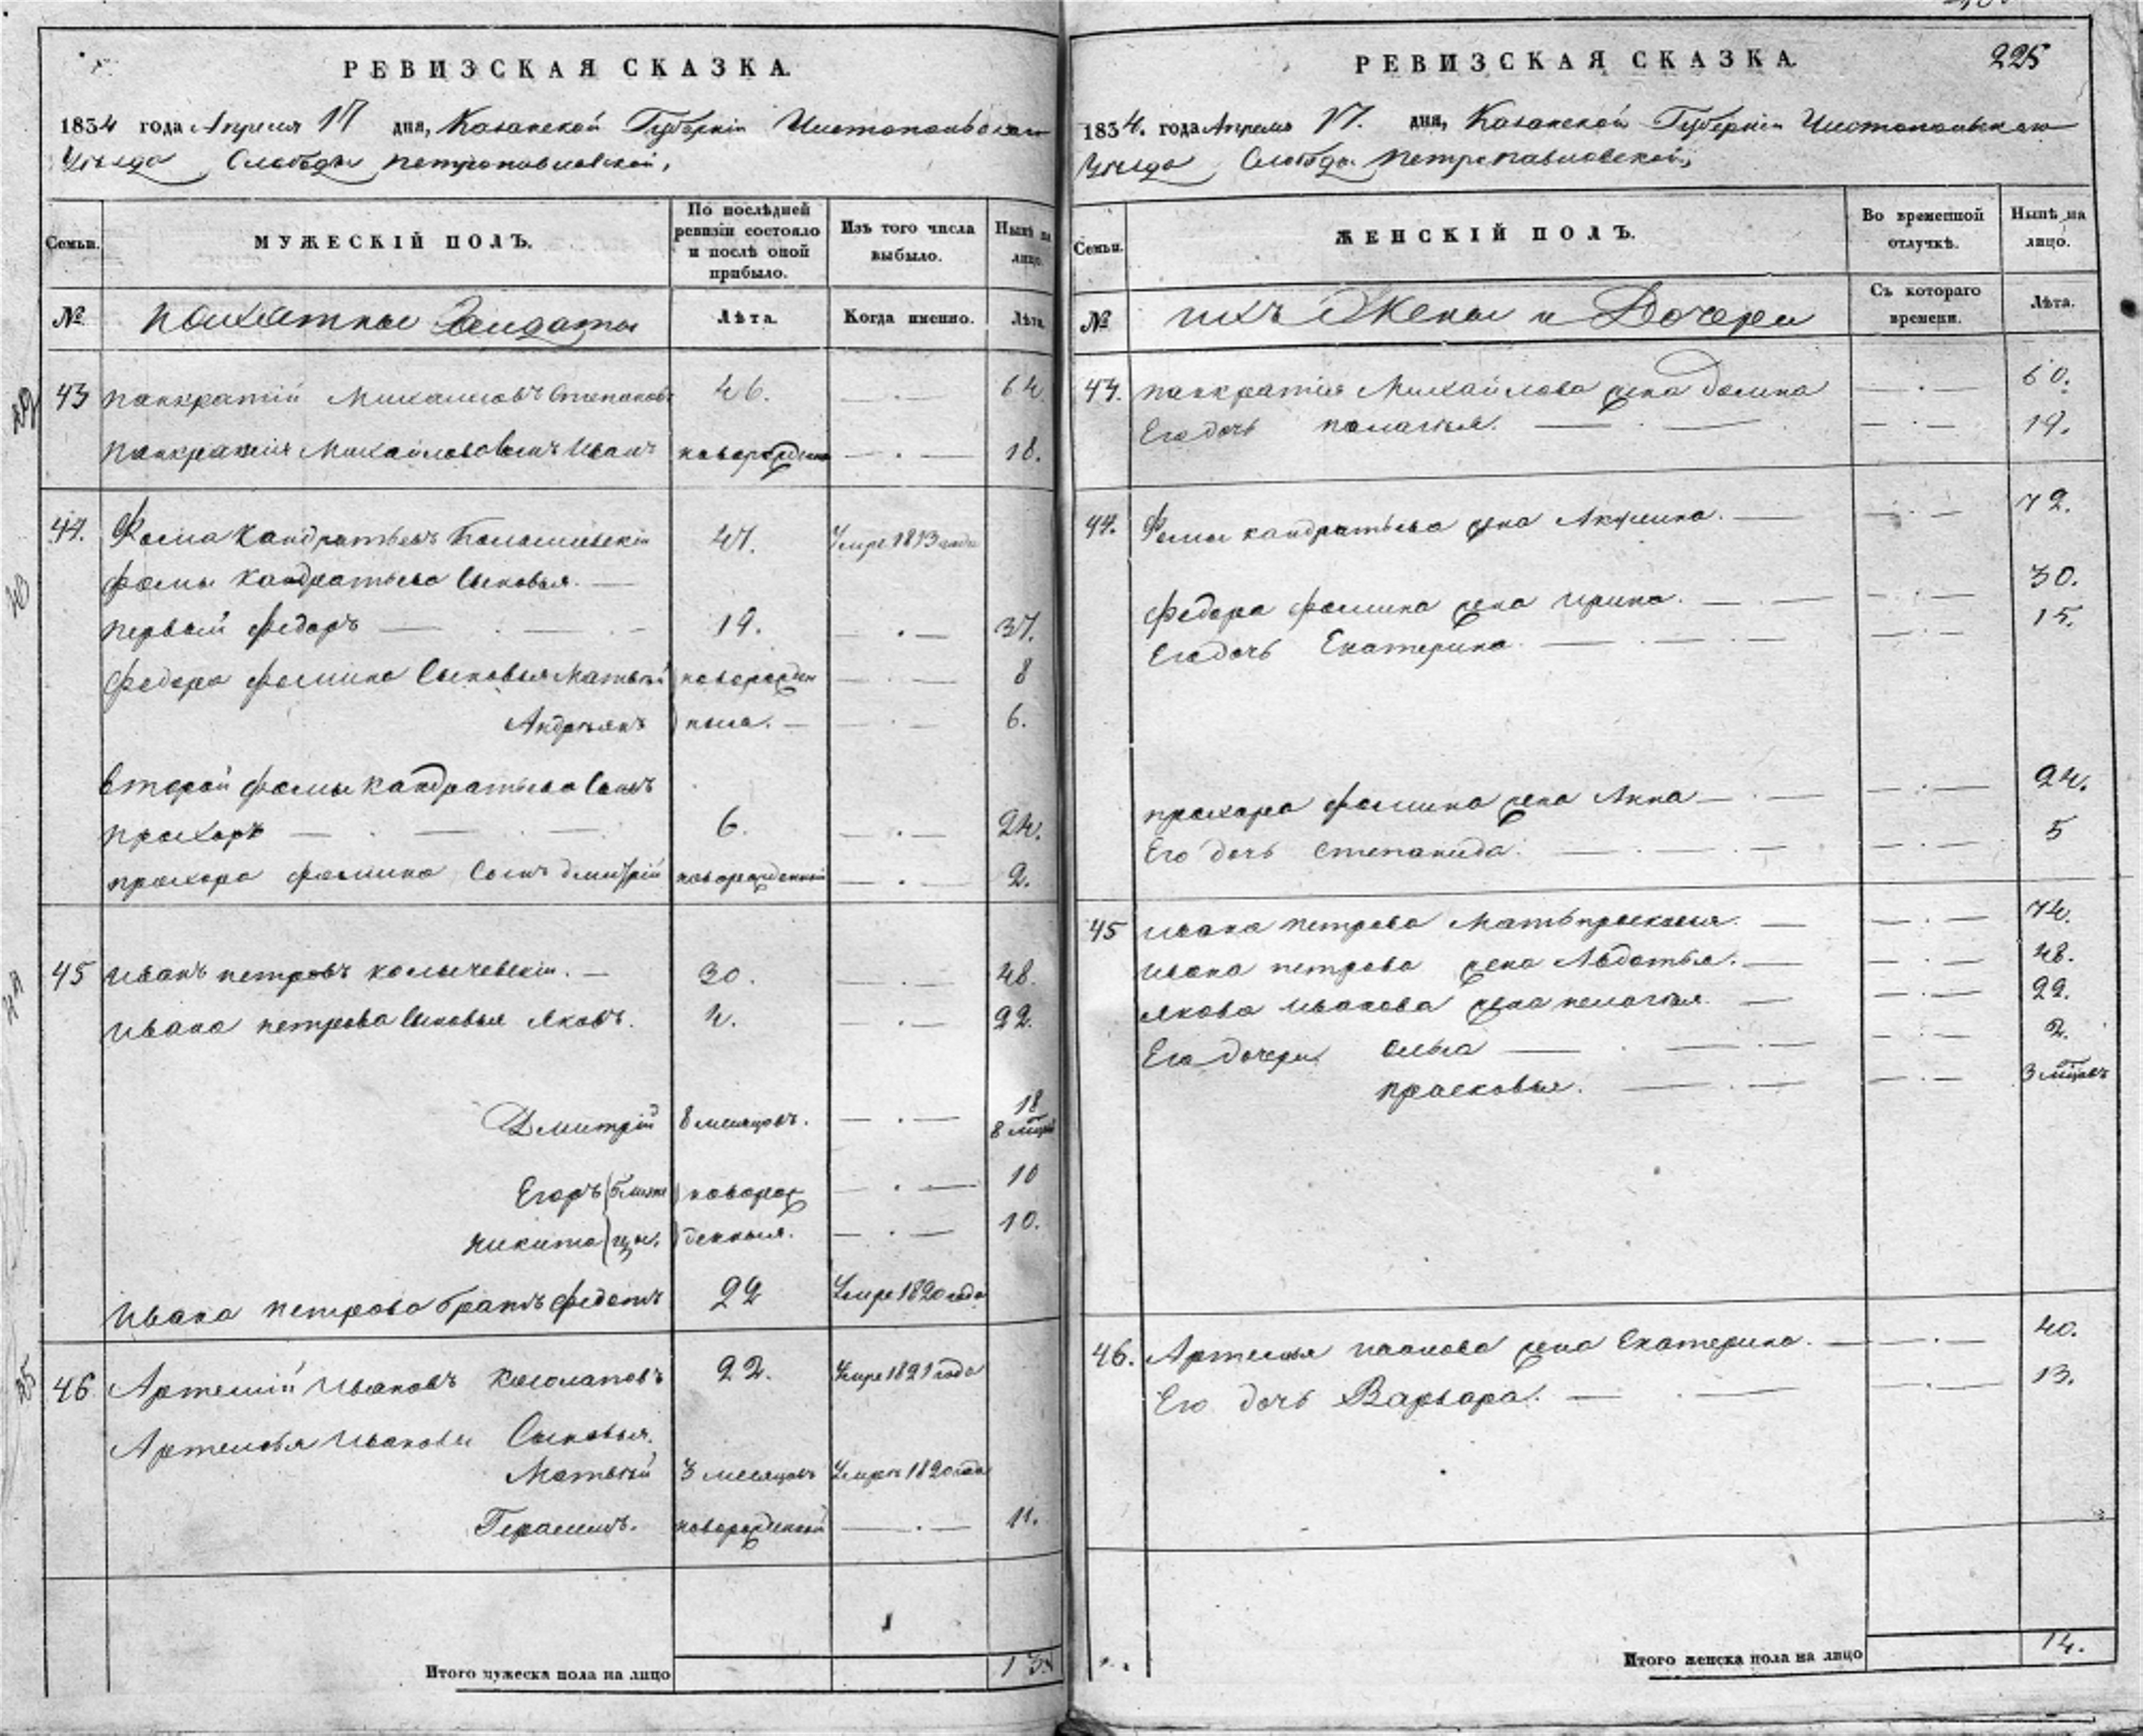 РЕВИЗСКАЯ СКАЗКА.
1834 года Апреля 17 дня, Казанской Губернiи Чистопольскаго
Уѣзда Слободы Петропавловской,
Семьи. МУЖЕСКIЙ ПОЛЪ. По послѣдней ревизiи состояло и послѣ оной прибыло. Изъ того числа выбыло. Нынѣ на лицо.
№ Пахатные Солдаты Лѣта. Когда именно. Лѣта.
43 Панкратiй Михаиловъ Степановъ 46. 64
Панкратiя Михайлова сынъ Иванъ новорожденный 18.
44. Фома Кандратьевъ 47. Умре 1813 года
Фомы Кандратьева Сыновья.
первый Федоръ 19. 37.
Федора Фомина Сыновья Матвѣй новорожден 8
Андреянъ ныя. 6.
второй Фомы Кандратьева Сынъ
Прохоръ 6. 24.
Прохора Фомина Сынъ Дмитрiй новорожденный 2.
45 Иванъ Петровъ Колычевскiй. 30. 48.
Ивана Петрова Сыновья Яковъ. 4. 22.
Дмитрiй 8 месяцовъ. 18
8 мцов
Егоръ близне новорож 10
Никита цы. денныя. 10.
Ивана Петрова братъ Федотъ 22 Умре 1820 года
46 Артемiй Ивановъ Косолаповъ 22. Умре 1821 года
Артемья Иванова Сыновья.
Матвѣй 3 месяцовъ Умре 1820 года
Герасимъ. новорожденный 11.
Итого мужеска пола на лицо 13.
РЕВИЗСКАЯ СКАЗКА. 225
1834. года Апреля 17. дня, Казанской Губернiи Чистопольскаго
Уѣзда Слободы Петропавловской,
Семьи. ЖЕНСКIЙ ПОЛЪ. Во временной отлучкѣ. Нынѣ на лицо.
№ ихъ Жены и Дочери Съ котораго времени. Лѣта.
43. Панкратiя Михайлова жена Домна 60.
Его дочь Палагѣя. 19.
44. Фомы Кандратьева жена Акулина. 72.
Федора Фомина жена Ирина. 30.
Его дочь Екатерина. 15.
Прохора Фомина жена Анна 24.
Его дочь Степанида. 5
45 Ивана Петрова Мать Прасковья. 74.
Ивана Петрова жена Авдотья. 48.
Якова Иванова жена Пелагѣя. 22.
Его дочери Ольга 2.
Прасковья. 3 мцовъ
46. Артемья Иванова жена Екатерина. 40.
Его дочь Варвара. 13.
Итого женска пола на лицо 14.